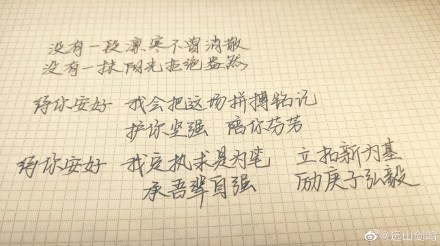 没有一段凛寒不曾消散
没有一抹阳光拒绝盎然
待你安好 我会把这场拼搏铭记
护你坚强 陪你芬芳
待你安好 我定执求是为笔 立拓新为基
承吾辈自强 励庚子弘毅
@远山剑峰